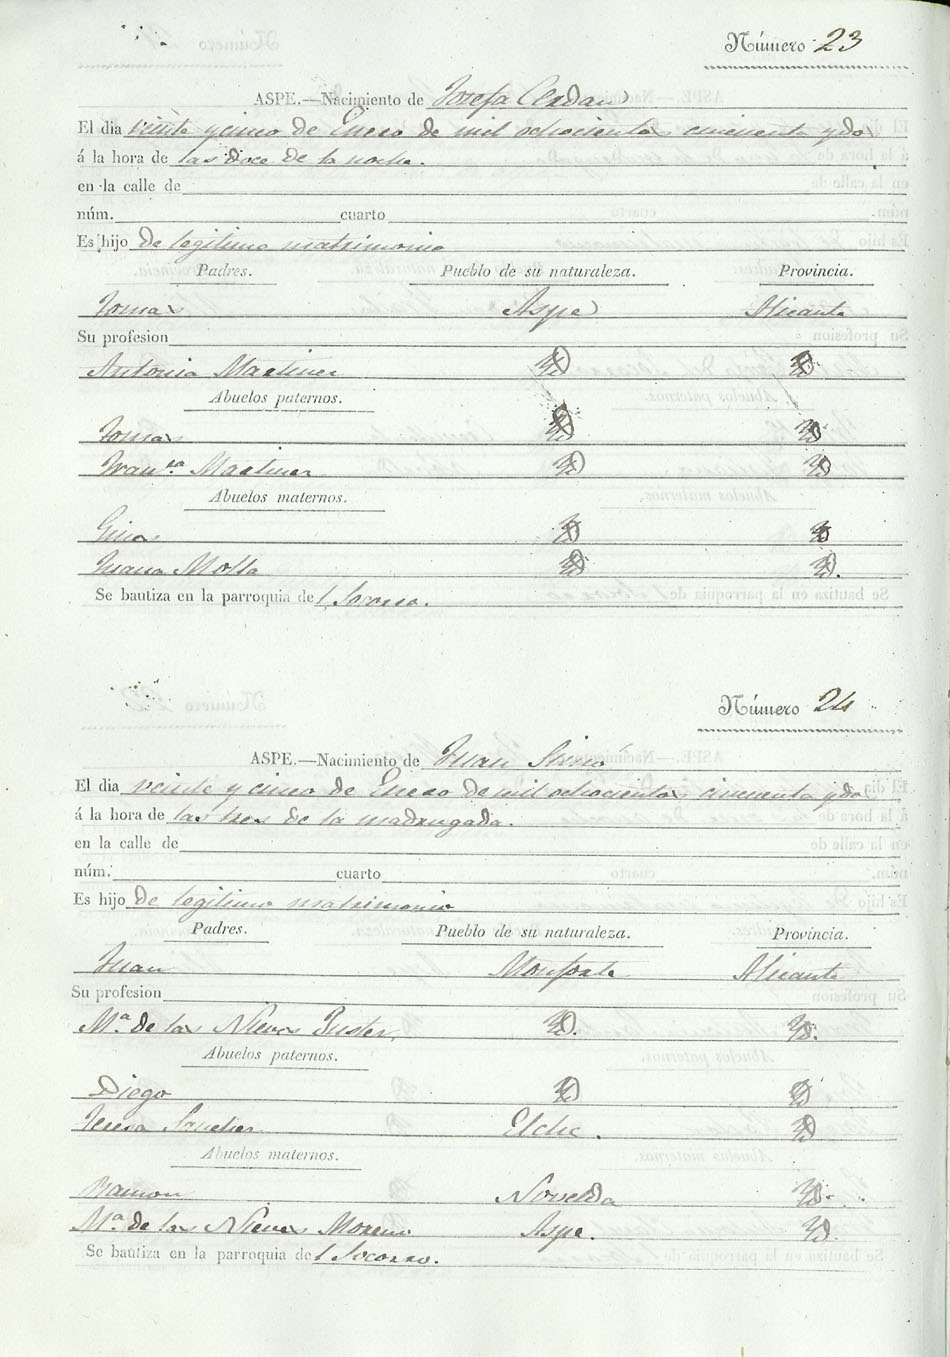 Número 23
ASPE.—Nacimiento de Josefa Cerdan
El dia veinte y cinco de Enero de mil ochocientos cincuenta y dos
á la hora de las doce de la noche.
en la calle de
núm. cuarto
Es hijo de legitimo matrimonio
Padres. Pueblo de su naturaleza. Provincia.
Tomas Aspe Alicante
Su profesion
Antonia Martinez Yd Yd
Abuelos paternos.
Tomas Yd Yd
Fran.ca Martinez Yd Yd
Abuelos maternos.
Gines Yd Yd
Juana Molla Yd Yd.
Se bautiza en la parroquia del Socorro.
Número 24
ASPE.—Nacimiento de Juan
El dia veinte y cinco de Enero de mil ochocientos cincuenta y dos
á la hora de las tres de la madrugada.
en la calle de
núm. cuarto
Es hijo de legitimo matrimonio
Padres. Pueblo de su naturaleza. Provincia.
Juan Monforte Alicante
Su profesion
M.a de las Nieves Yd. Yd.
Abuelos paternos.
Diego Yd Yd
Teresa Sanchez Elche. Yd
Abuelos maternos.
Ramon Novelda Yd.
M.a de las Nieves Moreno Aspe. Yd.
Se bautiza en la parroquia del Socorro.